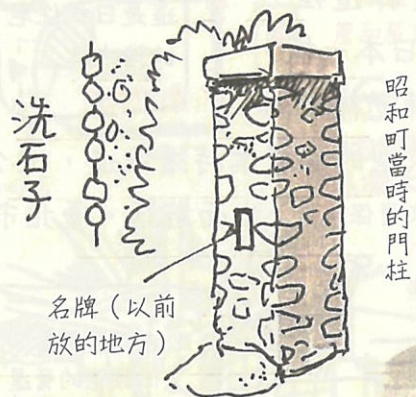 昭和町當時的門柱
洗石子
名牌（以前
放的地方）